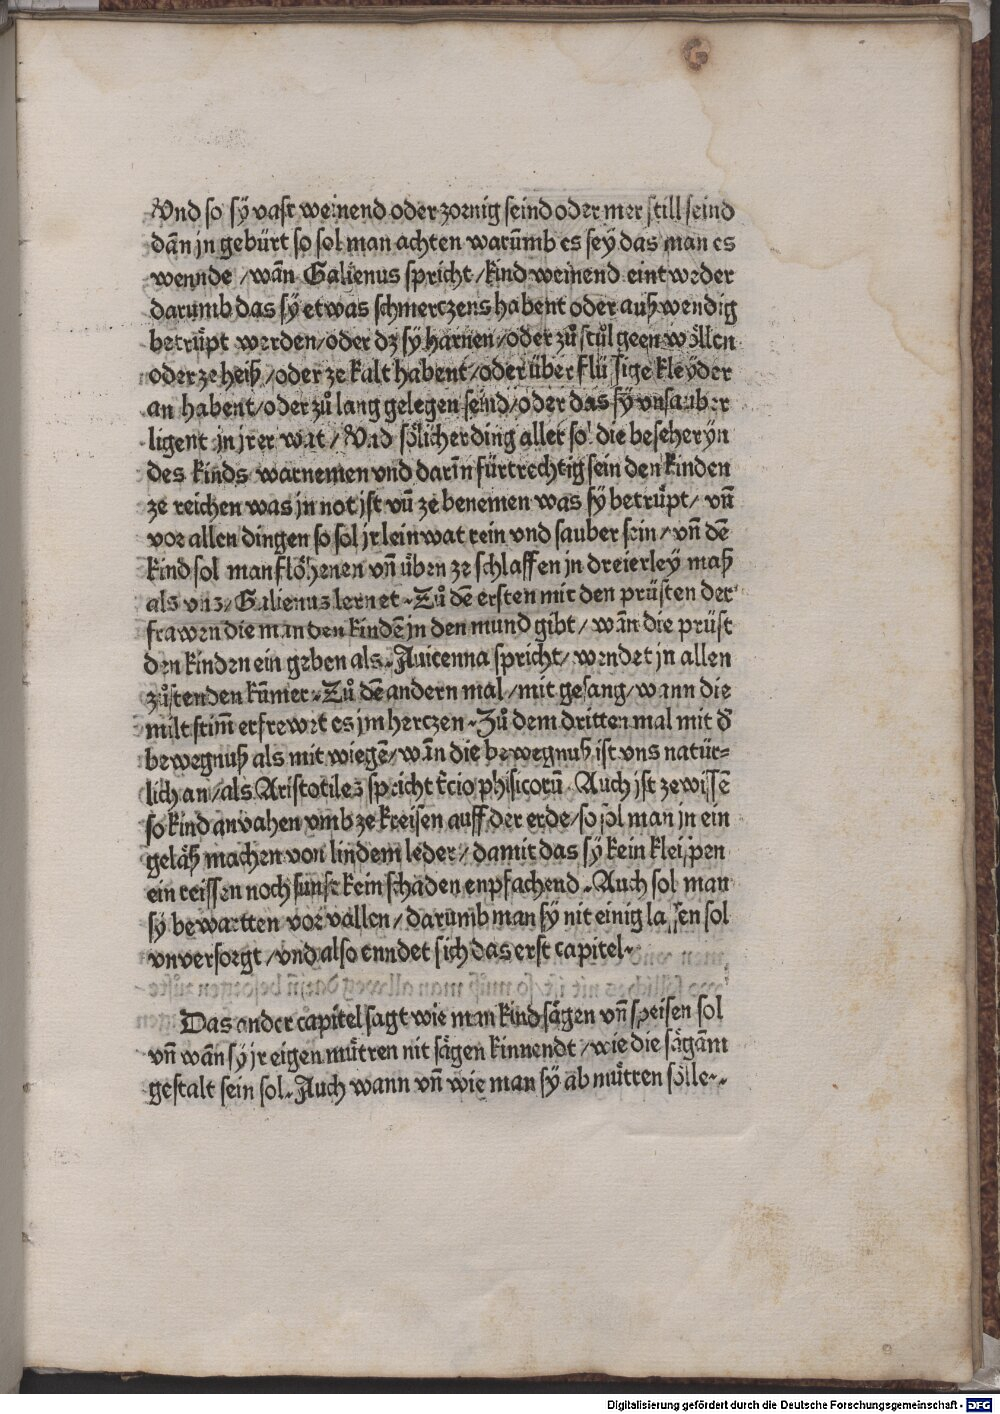 Vnd so sÿ vast weinend oder zornig seind oder mer still seind
dañ jn gebürt so sol man achten warūmb es seÿ das man es
wennde / wañ Galienus spricht / kind weinend eintweder
darumb das sÿ etwas schmerczens habent oder außwendig
betrůpt werden / oder dz sÿ harnen / oder zů stůl geen wöllen
oder ze heiß / oder ze kalt habent / oder überflüssige kleÿder
an habent / oder zů lang gelegen seind / oder das sÿ vnsauber
ligent jn jrer wat / Vnd sölicher ding aller sol die beseherÿn
des kinds warnemen vnd darīn fürtrechtig sein den kinden
ze reichen was jn not jst vñ ze benemen was sÿ betrůpt / vñ
vor allen dingen so sol jr leinwat rein vnd sauber sein / vñ dē
kind sol man flöhenen vñ üben ze schlaffen jn dreierleÿ maß
als vns / Galienus lernet. Zů dē ersten mit den prüsten der
frawen die man den kindē jn den mund gibt / wañ die prüst
den kinden ein geben als. Auicenna spricht / wendet jn allen
zůstenden kūmer. Zů dē andern mal / mit gesang / wann die
milt stim̄ erfrewet es jm herczen. Zů dem dritten mal mit d̄
bewegnuß als mit wiegē / wañ die bewegnuß ist vns natür=
lich an / als Aristotiles spricht t̄cio phisicorū. Auch jst ze wissē
so kind anvahen vmb ze kreisen auff der erde / so sol man jn ein
geläß machen von lindem leder / damit das sÿ kein kleispen
ein reissen noch sunst kein schaden enpfachend. Auch sol man
sÿ bewartten vor vallen / darumb man sÿ nit einig lassen sol
vnversorgt / vnd also enndet sich das erst capitel.
Das ander capitel sagt wie man kind sägen vñ speisen sol
vñ wañ sÿ jr eigen můtren nit sägen kinnendt / wie die sägam̄
gestalt sein sol. Auch wann vñ wie man sÿ ab můtren sölle.
Digitalisierung gefördert durch die Deutsche Forschungsgemeinschaft - DFG